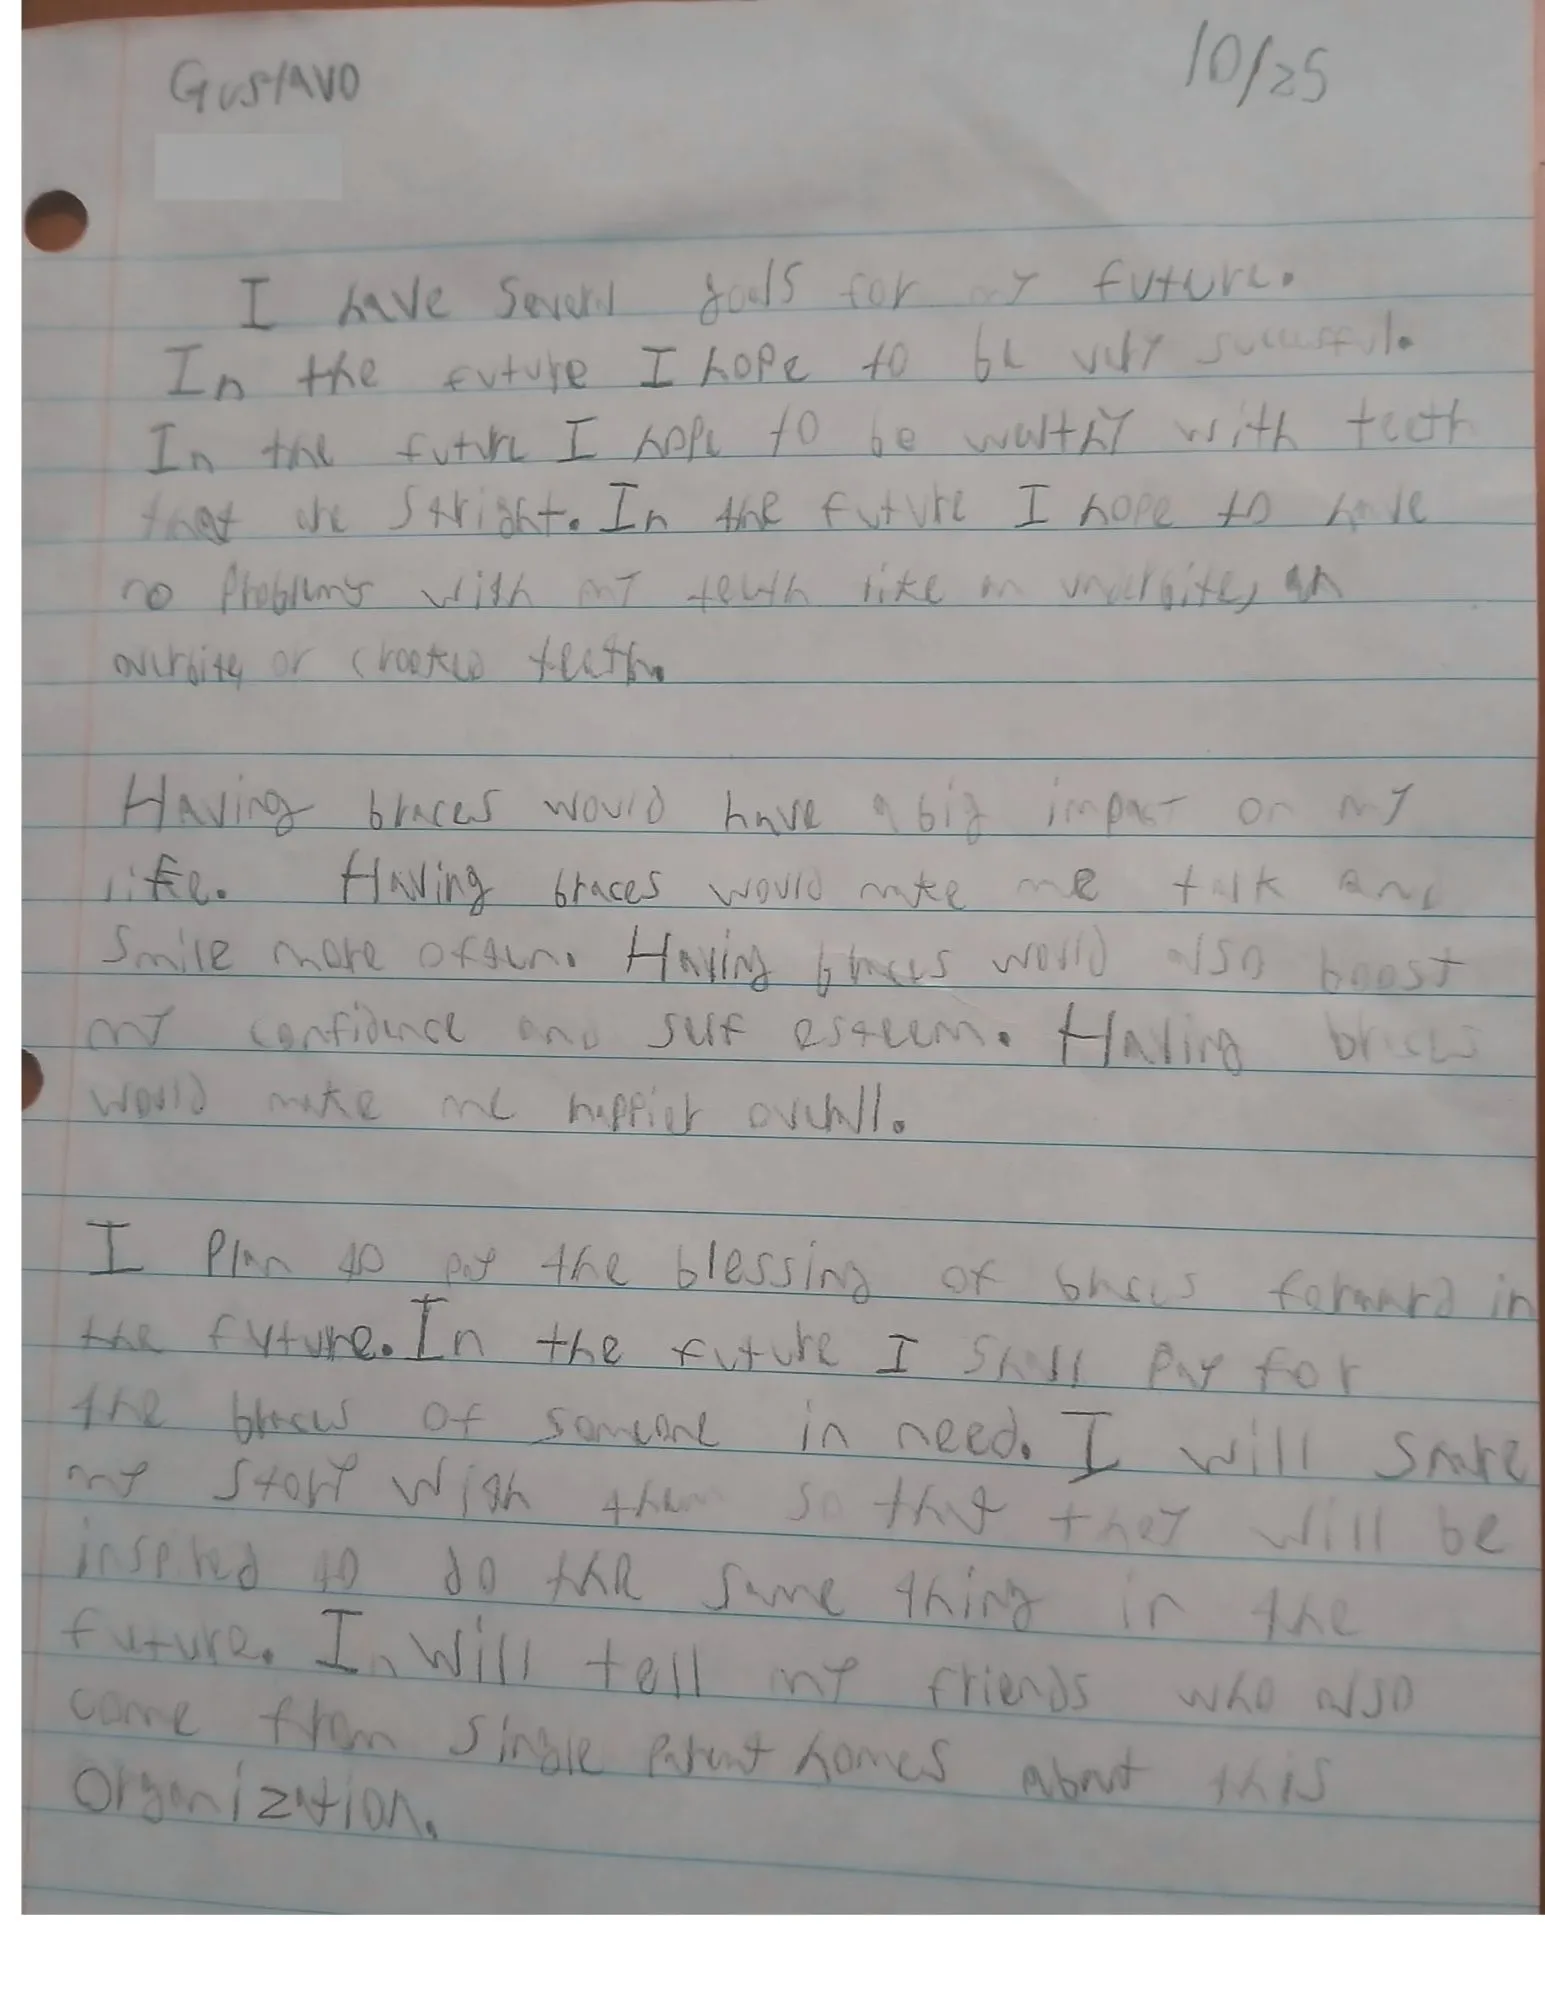 Gustavo 10/25
I have several goals for my future.
In the future I hope to be very successful.
In the future I hope to be wealthy with teeth
that are stright. In the future I hope to have
no problems with my teeth like an underbite, an
overbite, or crooked teeth.
Having braces would have a big impact on my
life. Having braces would make me talk and
smile more often. Having braces would also boost
my confidence and self esteem. Having braces
would make me happier overall.
I plan to pay the blessing of braces forward in
the future. In the future I shall pay for
the braces of someone in need. I will share
my story with them so that they will be
inspired to do the same thing in the
future. In will tell my friends who also
come from single parent homes about this
organization.